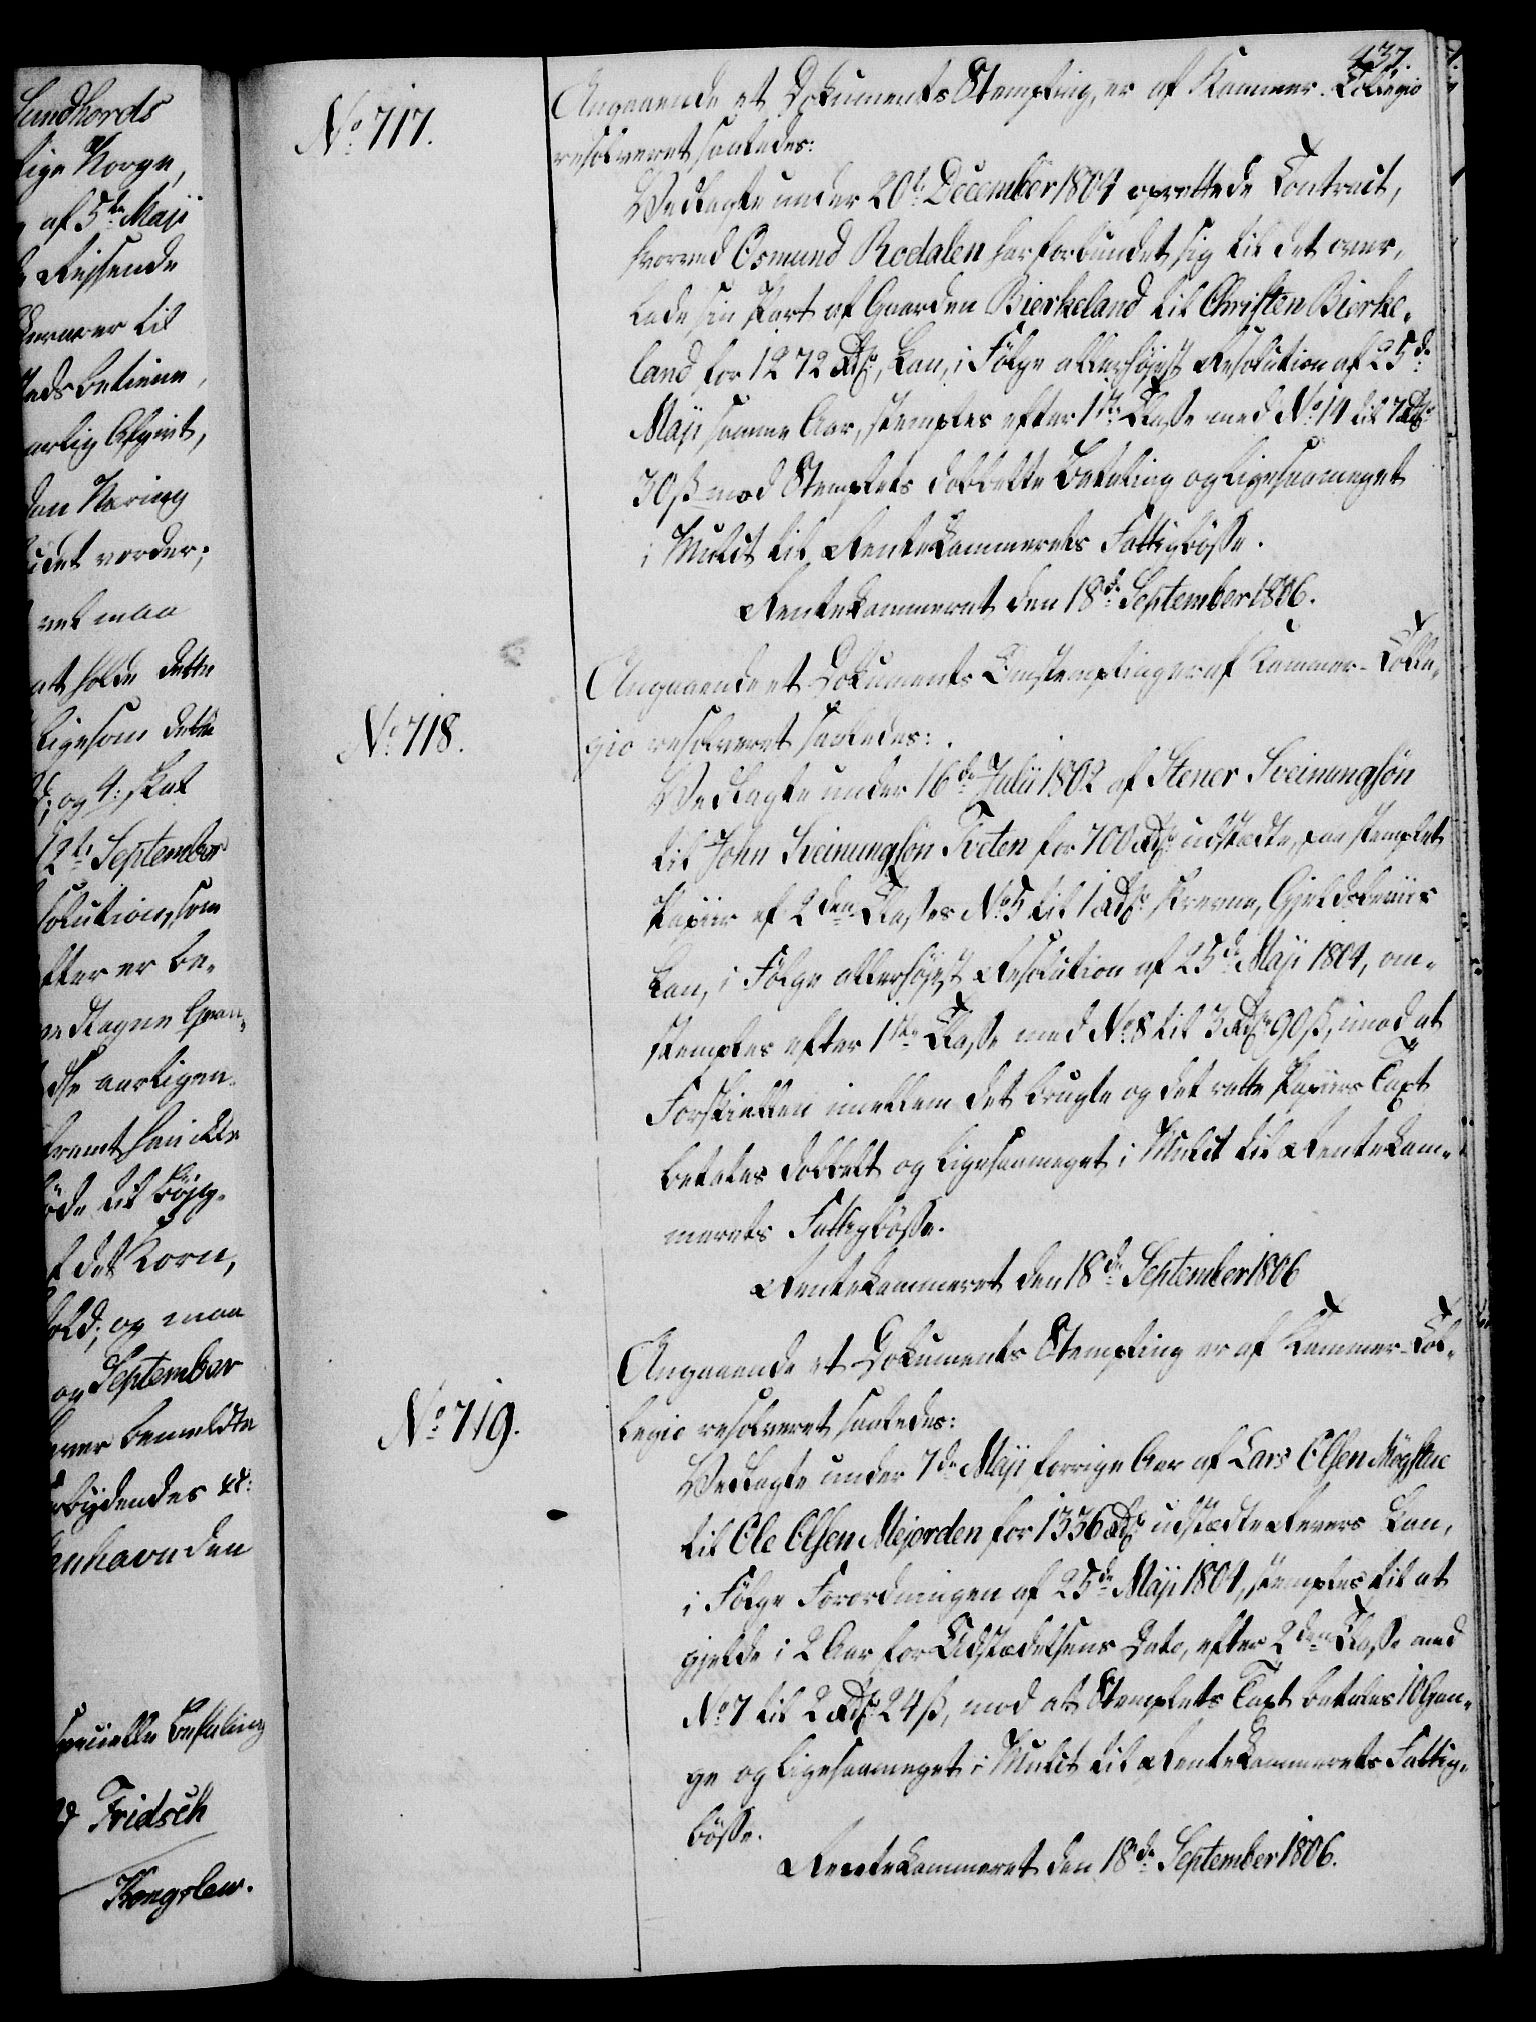 Sundhords
lige Norge,
af 5te Maji
Reisende
verne er til
stedsbetiene,
aarlig Afgivt,
dan Næring
budet vorder;
vel maa
at holde dette
ligesom dette
og 4: skal
12te September
solution, som
fter er be-
aarligen
fremt han ikke
til Kiøb-
f det Korn,
hold; og maa
og September
over bemeldte
rbydendes etc:
enhavn den
specielle Befaling
Fridsch
Kongslew.
437.
No: 717.
Angaaende et Dokuments Stempling, er af Kammer-Collegio
resolveret saaledes:
Vedlagte under 20de December 1804 oprettede Contract,
hvorved Osmund Rodalen har forbundet sig til det over-
lade sin Part af Gaarden Bierkeland til Christen Bierke-
land for 1272 Rdr, kan, i Følge allerhøjest Resolution af 25de
Maji samme Aar, stemples efter 1ste Classe med No: 14 til 7 Rdr
30 ß mod Stemplets dobbelte Betaling og ligesaameget
i Mulct til Rentekammerets Fattigbøsse.
Rentekammeret den 18de September 1806.
No: 718.
Angaaende et Dokuments Omstempling er af Kammer-Colle-
gio resolveret saaledes:
Vedlagte under 16de Julii 1802 af Stener Sveinungsøn
til John Sveinungsøn Tveten for 700 Rdr udstædte, paa stemplet
Papiir af 2den Classes No 5 til 1 Rdr skrevne, Gjeldsbeviis
kan, i Følge allerhøjest Resolution af 25de Maji 1804, om-
stemples efter 1ste Classe med No: 8 til 3 Rdr 90 ß, imod at
Forskiellen imellem det brugte og det rette Papiirs Taxt
betales dobbelt og ligesaameget i Mulct til Rentekam-
merets Fattigbøsse.
Rentekammeret den 18de September 1806
No: 719.
Angaaende et Dokuments Stempling er af Kammer-Col-
legio resolveret saaledes:
Vedlagte under 7de Maji forrige Aar af Lars Olsen Møgstue
til Ole Olsen Mejorden for 1336 Rdr udstædte Revers kan,
i Følge Forordningen af 25de Maji 1804, stemples til at
gjelde i 2 Aar fra Udstædelsens Dato, efter 2den Classe med
No: 7 til 2 Rdr 24 ß, mod at Stemplets Taxt betales 10 Gan-
ge og ligesaameget i Mulct til Rentekammerets Fattig-
bøsse.
Rentekammeret den 18de September 1806.